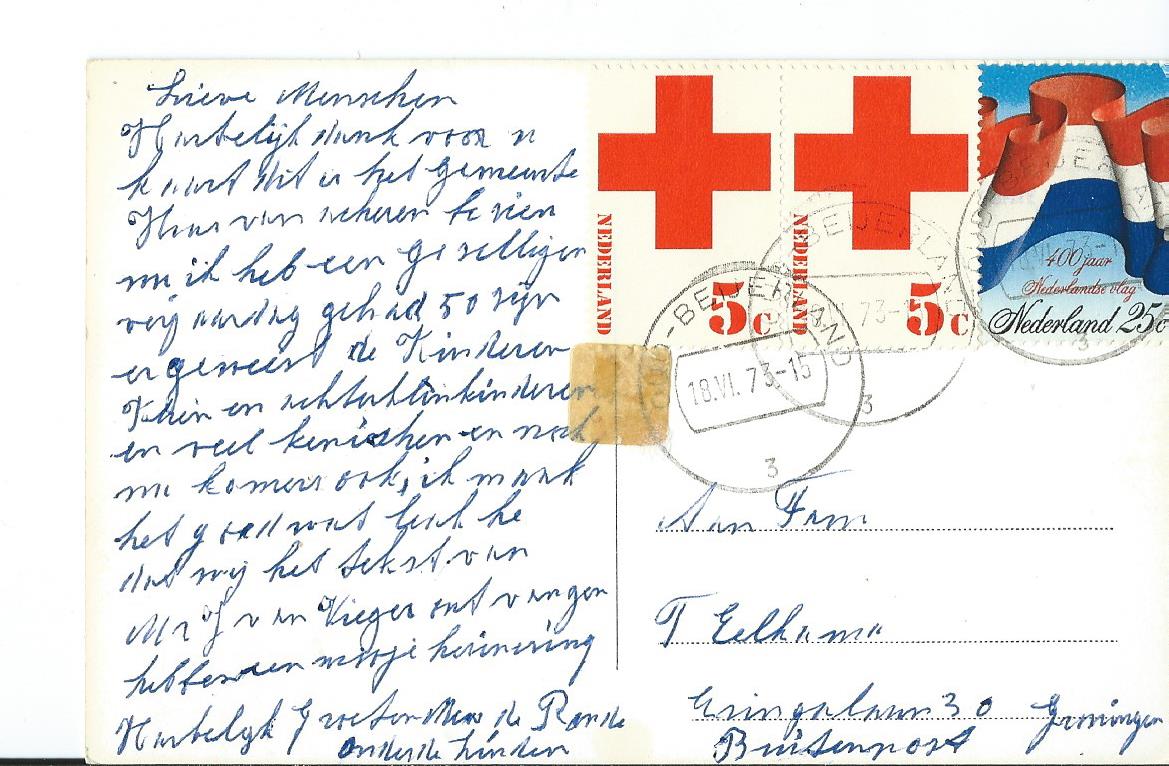 Lieve Menschen
Hartelijk dank voor u
kaart dit is het gemeente
Huis van acheren te zien
nu ik heb een gezelligen
verjaardag gehad 50 zijn
er geweest de Kinderen
Klein en achterkleinkinderen
en veel kenissen en noch
nu komers ook, ik maak
het goed wat leuk he
dat wij het tekst van
Mr J van Vieger ontvangen
hebben een mooje herinering
Hartelijk Groeten Mew de Ronde
onder de Linden
NEDERLAND
5c
NEDERLAND
5c
400 jaar
Nederlandse vlag
Nederland 25c
BEIJERLAND
18.VI.73-15
3
BEIJERLA
73-1
3
BEIJER
3
Aan Fam
T Eelkama
Eringalaan 30 Groningen
Buitenpost